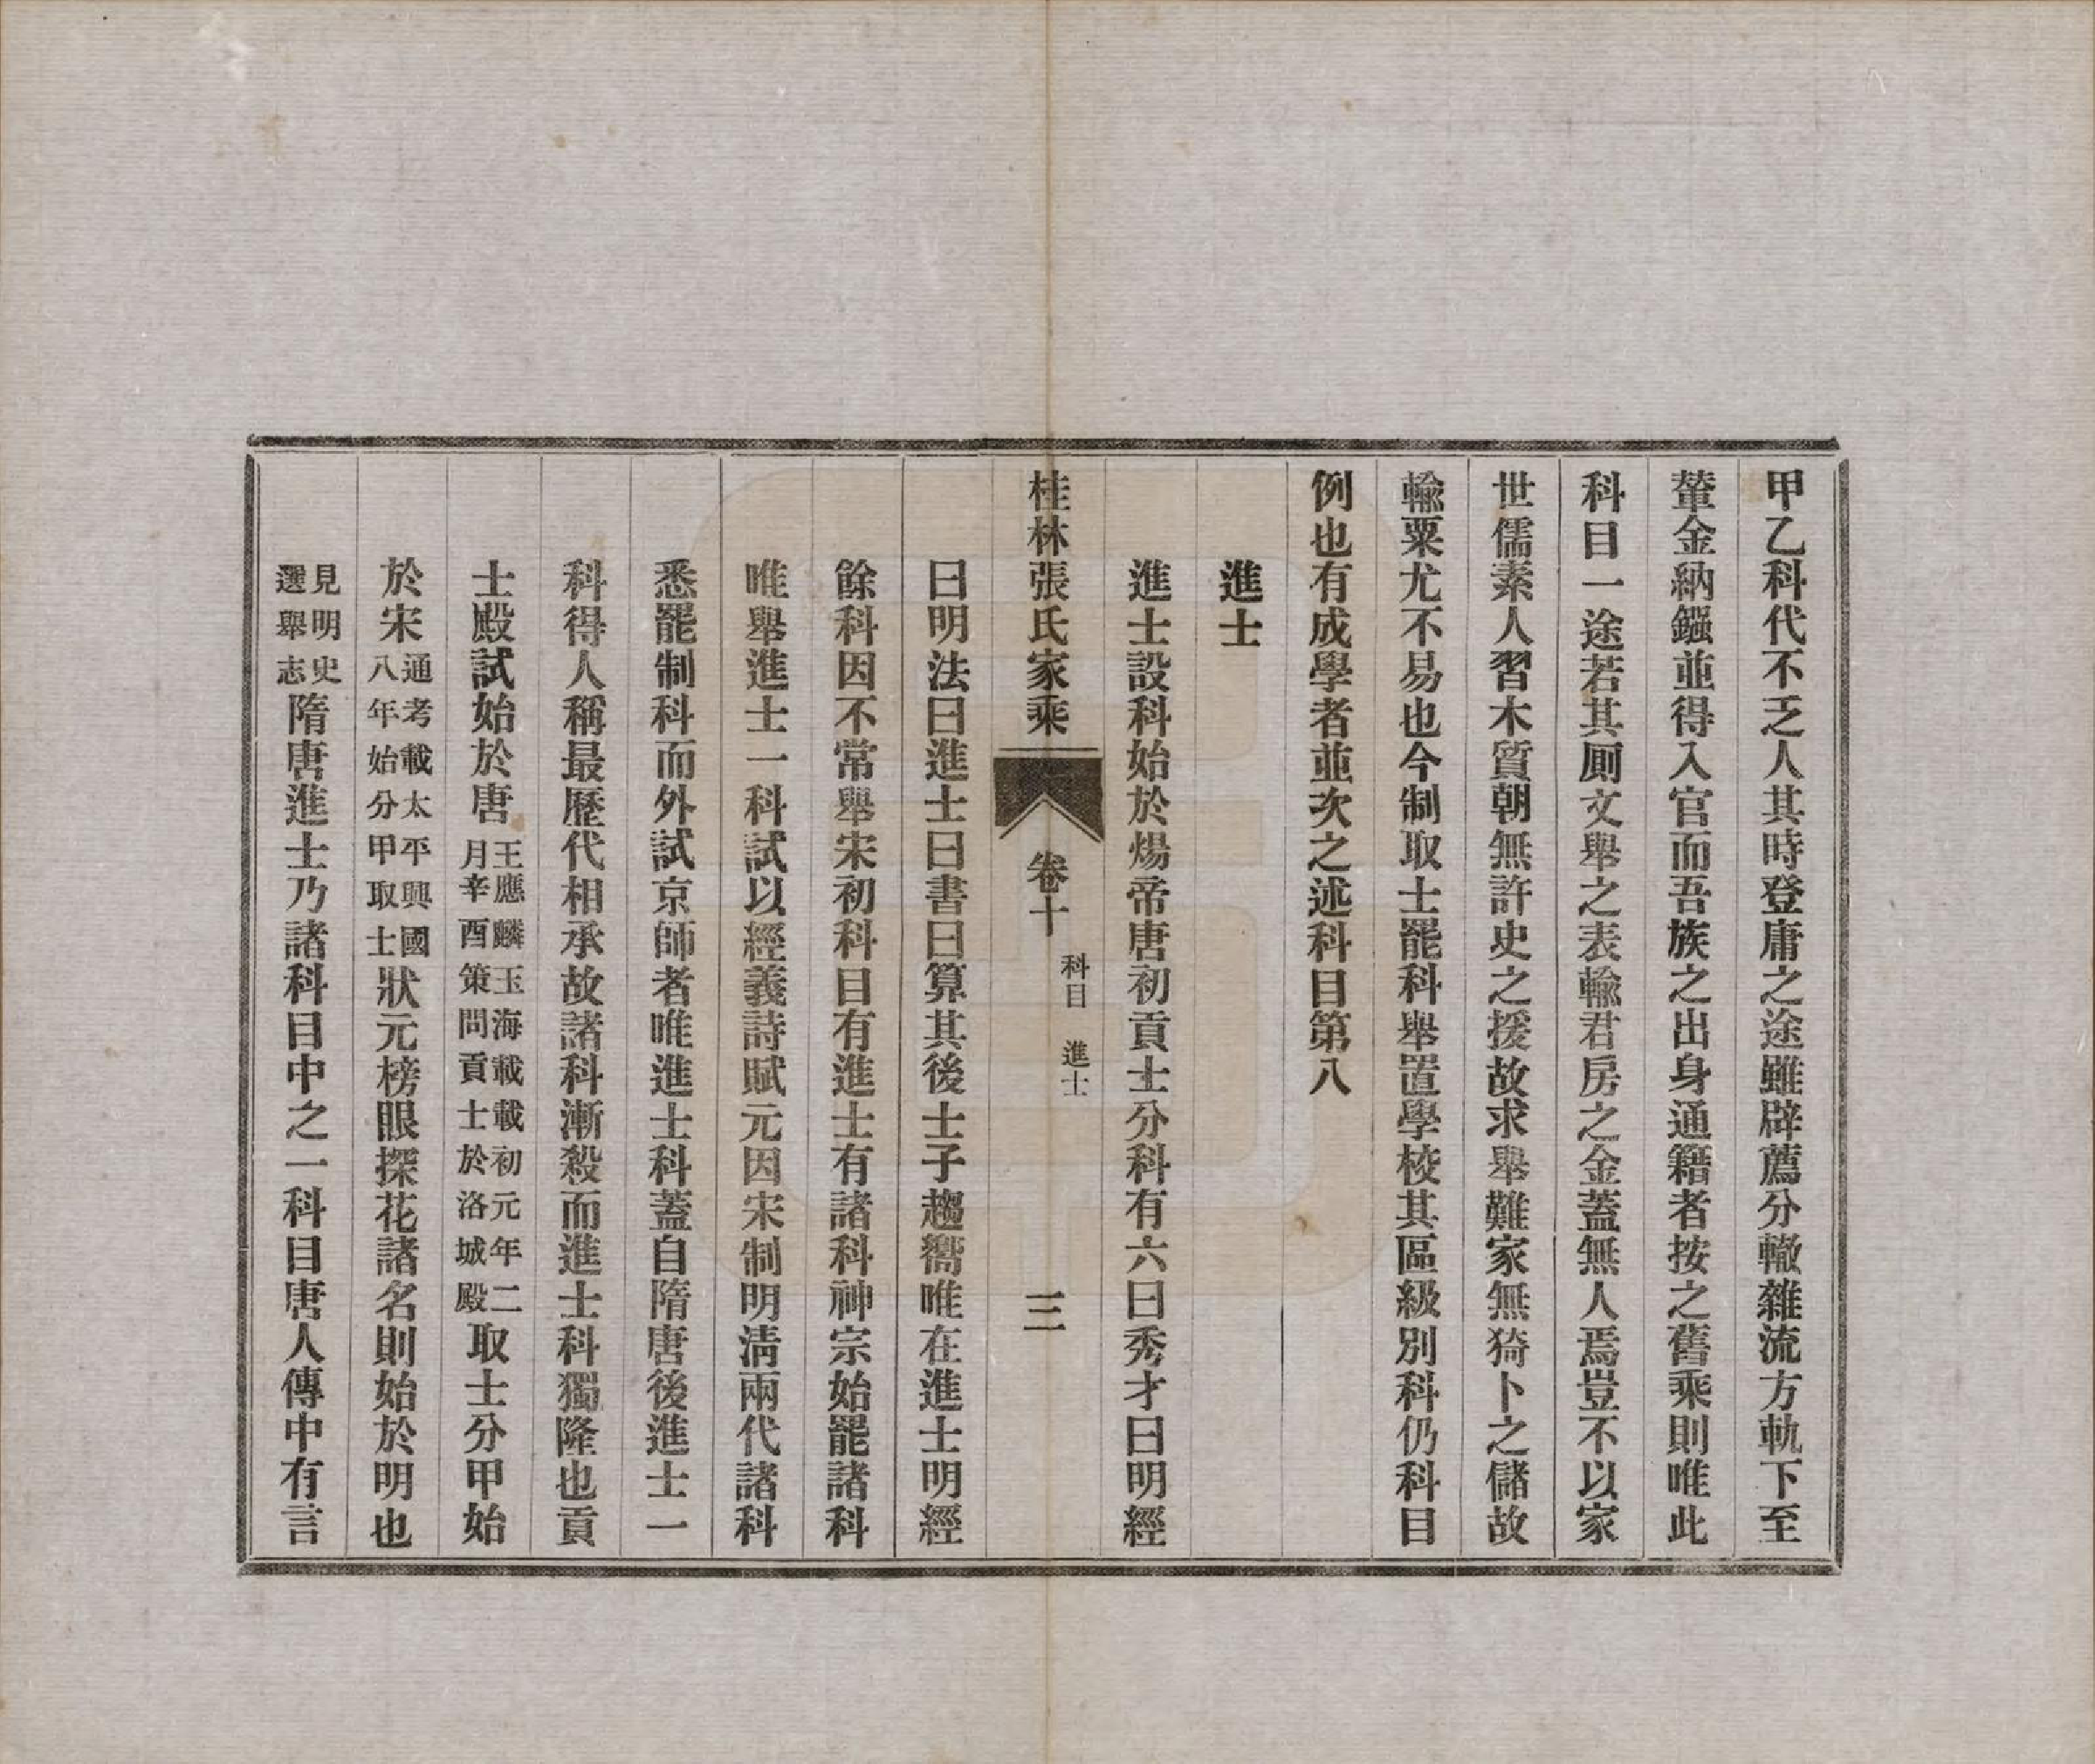 甲乙科代不乏人其時登庸之途雖辟薦分轍雜流方軌下至
輦金納鏹並得入官而吾族之出身通籍者按之舊乘則唯此
科目一途若其厠文舉之表輸君房之金蓋無人焉豈不以家
世儒素人習木質朝無許史之援故求舉難家無猗卜之儲故
輸粟尤不易也今制取士罷科舉置學校其區級別科仍科目
例也有成學者並次之述科目第八
進士
進士設科始於煬帝唐初貢士分科有六曰秀才曰明經
桂林張氏家乘
卷十
科目 進士
三
曰明法曰進士曰書曰算其後士子趨嚮唯在進士明經
餘科因不常舉宋初科目有進士有諸科神宗始罷諸科
唯舉進士一科試以經義詩賦元因宋制明清兩代諸科
悉罷制科而外試京師者唯進士科蓋自隋唐後進士一
科得人稱最歷代相承故諸科漸殺而進士科獨隆也貢
士殿試始於唐王應麟玉海載載初元年二月辛酉策問貢士於洛城殿取士分甲始
於宋通考載太平興國八年始分甲取士狀元榜眼探花諸名則始於明也
見明史選舉志隋唐進士乃諸科目中之一科目唐人傳中有言